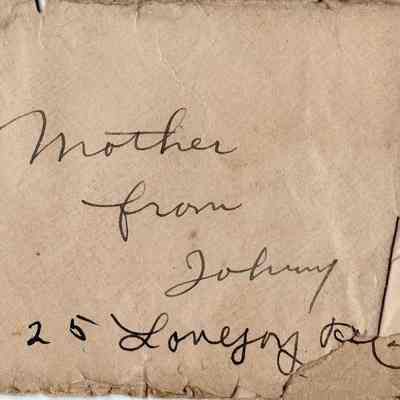 Mother
from
Johnny
25 Lovejoy